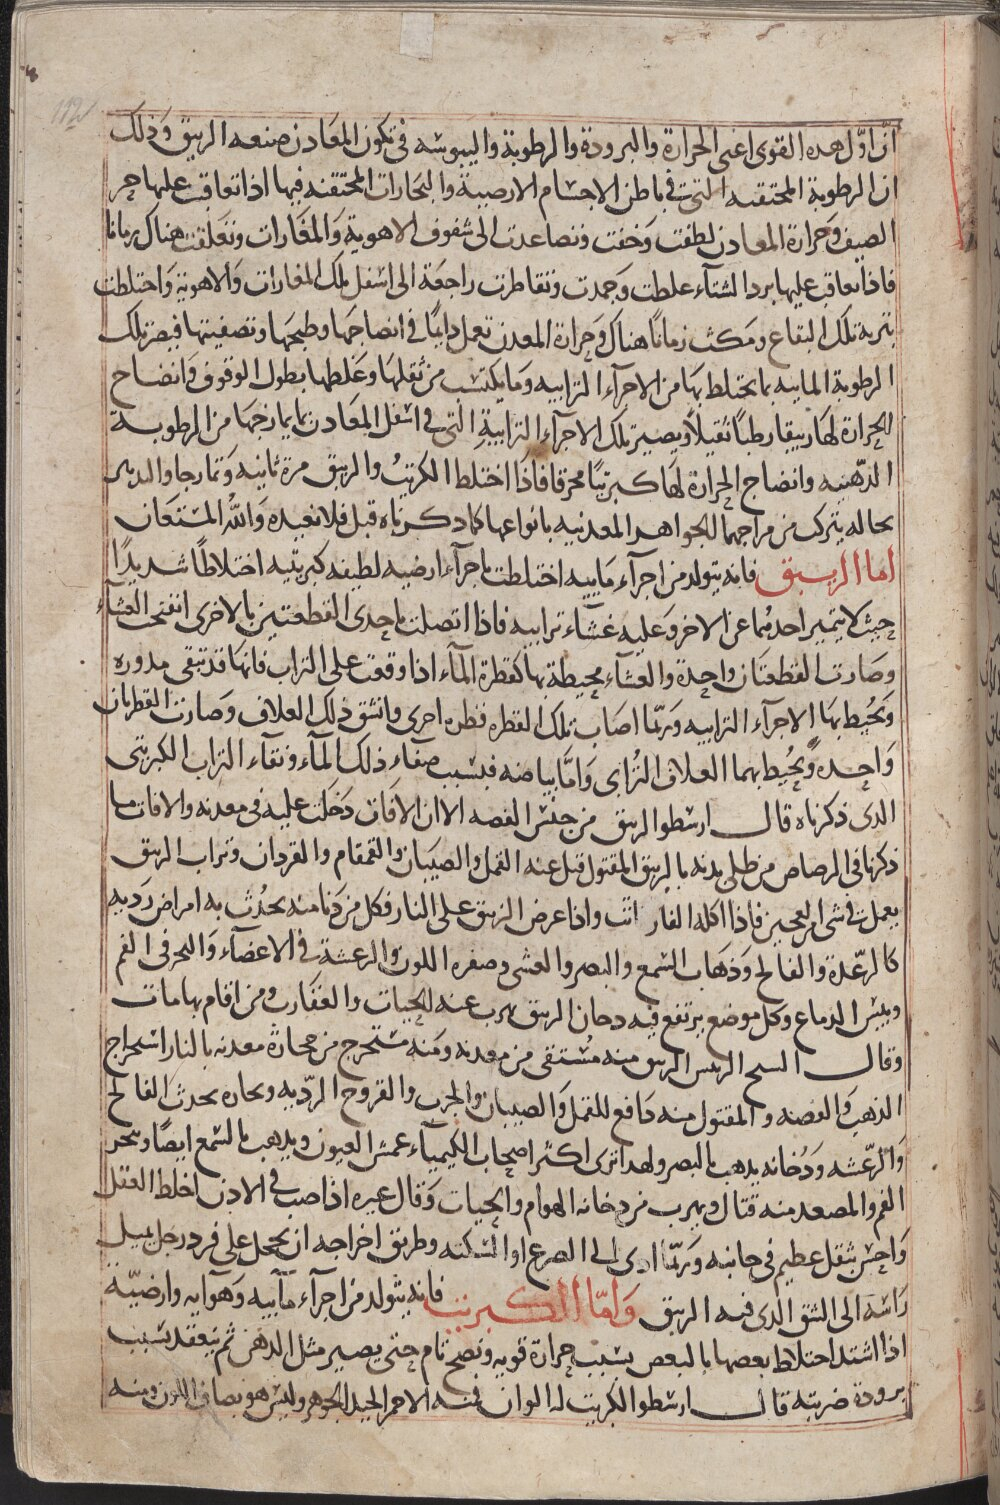 112
ان اول هذه القوى اعنى الحرارة والبرودة والرطوبة واليبوسه فى تكون المعادن صنعه الزيبق وذلك
ان الرطوبة المحتقنه التى فى باطن الاجسام الارضية والبخارات المحتقنه فيها اذا تعاقب عليها حر
الصيف وحرارة المعادن لطفت وخفت وتصاعدت الى سقوف الاهوية والمغارات وتعلقت هناك زمانا
فاذا تعاقب عليها برد الشتاء غلظت وجمدت وتقاطرت راجعة الى اسفل تلك المغارات والاهوية واختلطت
بتربة تلك البقاع ومكثت زمانا هناك وحرارة المعدن تعمل دايما فى انضاجها وطبخها وتصفيتها فيصير تلك
الرطوبة المائيه بما يختلط بها من الاجزآء الترابيه وما يكتسب من ثقلها وغلظها بطول الوقوف وانضاج
الحرارة لها زيبقا رطبا ثقيلا ويصير تلك الاجزآء الترابية التى فى اسفل المعادن بما يمازجها من الرطوبة
الدهنيه وانضاج الحرارة لها كبريتا محرقا فاذا اختلط الكبريت والزيبق مرة ثانيه وتمازجا والتدبير
بحاله يتركب من مزاجهما الجواهر المعدنيه بانواعها كما ذكرناه قبل فلا نعيده والله المستعان
اما الزيبق فانه يتولد من اجزآء مائيه اختلطت باجزآء ارضيه لطيفه كبريتيه اختلاطا شديدا
حيث لا يتميز احدهما عن الاخر وعليه غشآء ترابيه فاذا اتصلت باحدى القطعتين بالاخرى انفتح الغشآء
وصارت القطعتان واحدة والغشآء محيطة بها كقطرة المآء اذا وقعت على التراب فانها قد تبقى مدوره
ويحيط بها الاجزآء الترابيه وربما اصاب تلك القطره قطره اخرى وانشق ذلك الغلاف وصارت القطرتان
واحده ويحيط بهما الغلاف الترابى واما بياضه فبسبب صفآء ذلك المآء ونقآء التراب الكبريتى
الذى ذكرناه قال ارسطو الزيبق من جنس الفضه الا ان الافات دخلت عليه فى معدنه والافات ما
ذكرنا فى الرصاص من طلى بدنه بالزيبق المقتول قتل عنه القمل والصيبان والقمقام والقردان وتراب الزيبق
يعمل فى شى من العجين فاذا اكله الفار مات واذا عرض الزيبق على النار فكل من دنا منه يحدث به امراض رديه
كالرعدة والفالج وذهاب السمع والبصر والغشى وصفره اللون والرعشة فى الاعضآء والبخر فى الفم
ويبس الدماغ وكل موضع يرتفع فيه دخان الزيبق يهرب عنه الحيات والعقارب ومن اقام بها مات
وقال الشيخ الرئيس الزيبق منه مستقى من معدنه ومنه مستخرج من حجارة معدنه بالنار استخراج
الذهب والفضه والمقتول منه دافع للقمل والصيبان والجرب والقروح الرديه وبخاره يحدث الفالج
والرعشه ودخانه يذهب بالبصر ولهذا ترى اكثر اصحاب الكيميآء عمش العيون ويذهب بالسمع ايضا وبخر
الفم والمصعد منه قتال ويهرب من دخانه الهوام والحيات وقال غيره اذا صب فى الاذن اخلط العقل
واحس بثقل عظيم فى جانبه وربما ادى الى الصرع او السكته وطريق اخراجه ان يحجل على فرد رجل بميل
راسه الى الشق الذى فيه الزيبق واما الكبريت فانه يتولد من اجزآء مآئيه وهوآيه وارضيه
اذا اشتد اختلاط بعضها بالبعض بسبب حرارة قويه ونضج تام حتى يصير مثل الدهن ثم ينعقد بسبب
برودة ضربته قال ارسطو الكبريت له الوان فمنه الاحمر الجيد الجوهر وليس هو بصافى اللون ومنه